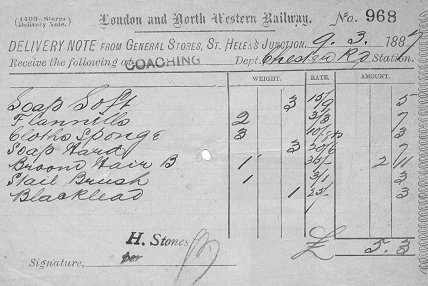 (4409-Stores)
(Delivery Note.)
London and North Western Railway.
No. 968
DELIVERY NOTE FROM GENERAL STORES, ST. HELEN'S JUNCTION. 9. 3. 1887
Receive the following at COACHING Dept. Chester Rd Station.
WEIGHT. RATE. AMOUNT.
Soap Soft 3 15/9 5
2 3/3 7
Cloths Sponge 3 7
Soap Hard 3 20/6 7
Broom Hair B 1 35/- 2 11
Stail Brush 1 3/1 3
Blacklead 1 25/- 3
H. Stones
£ 5. 3
Signature, per